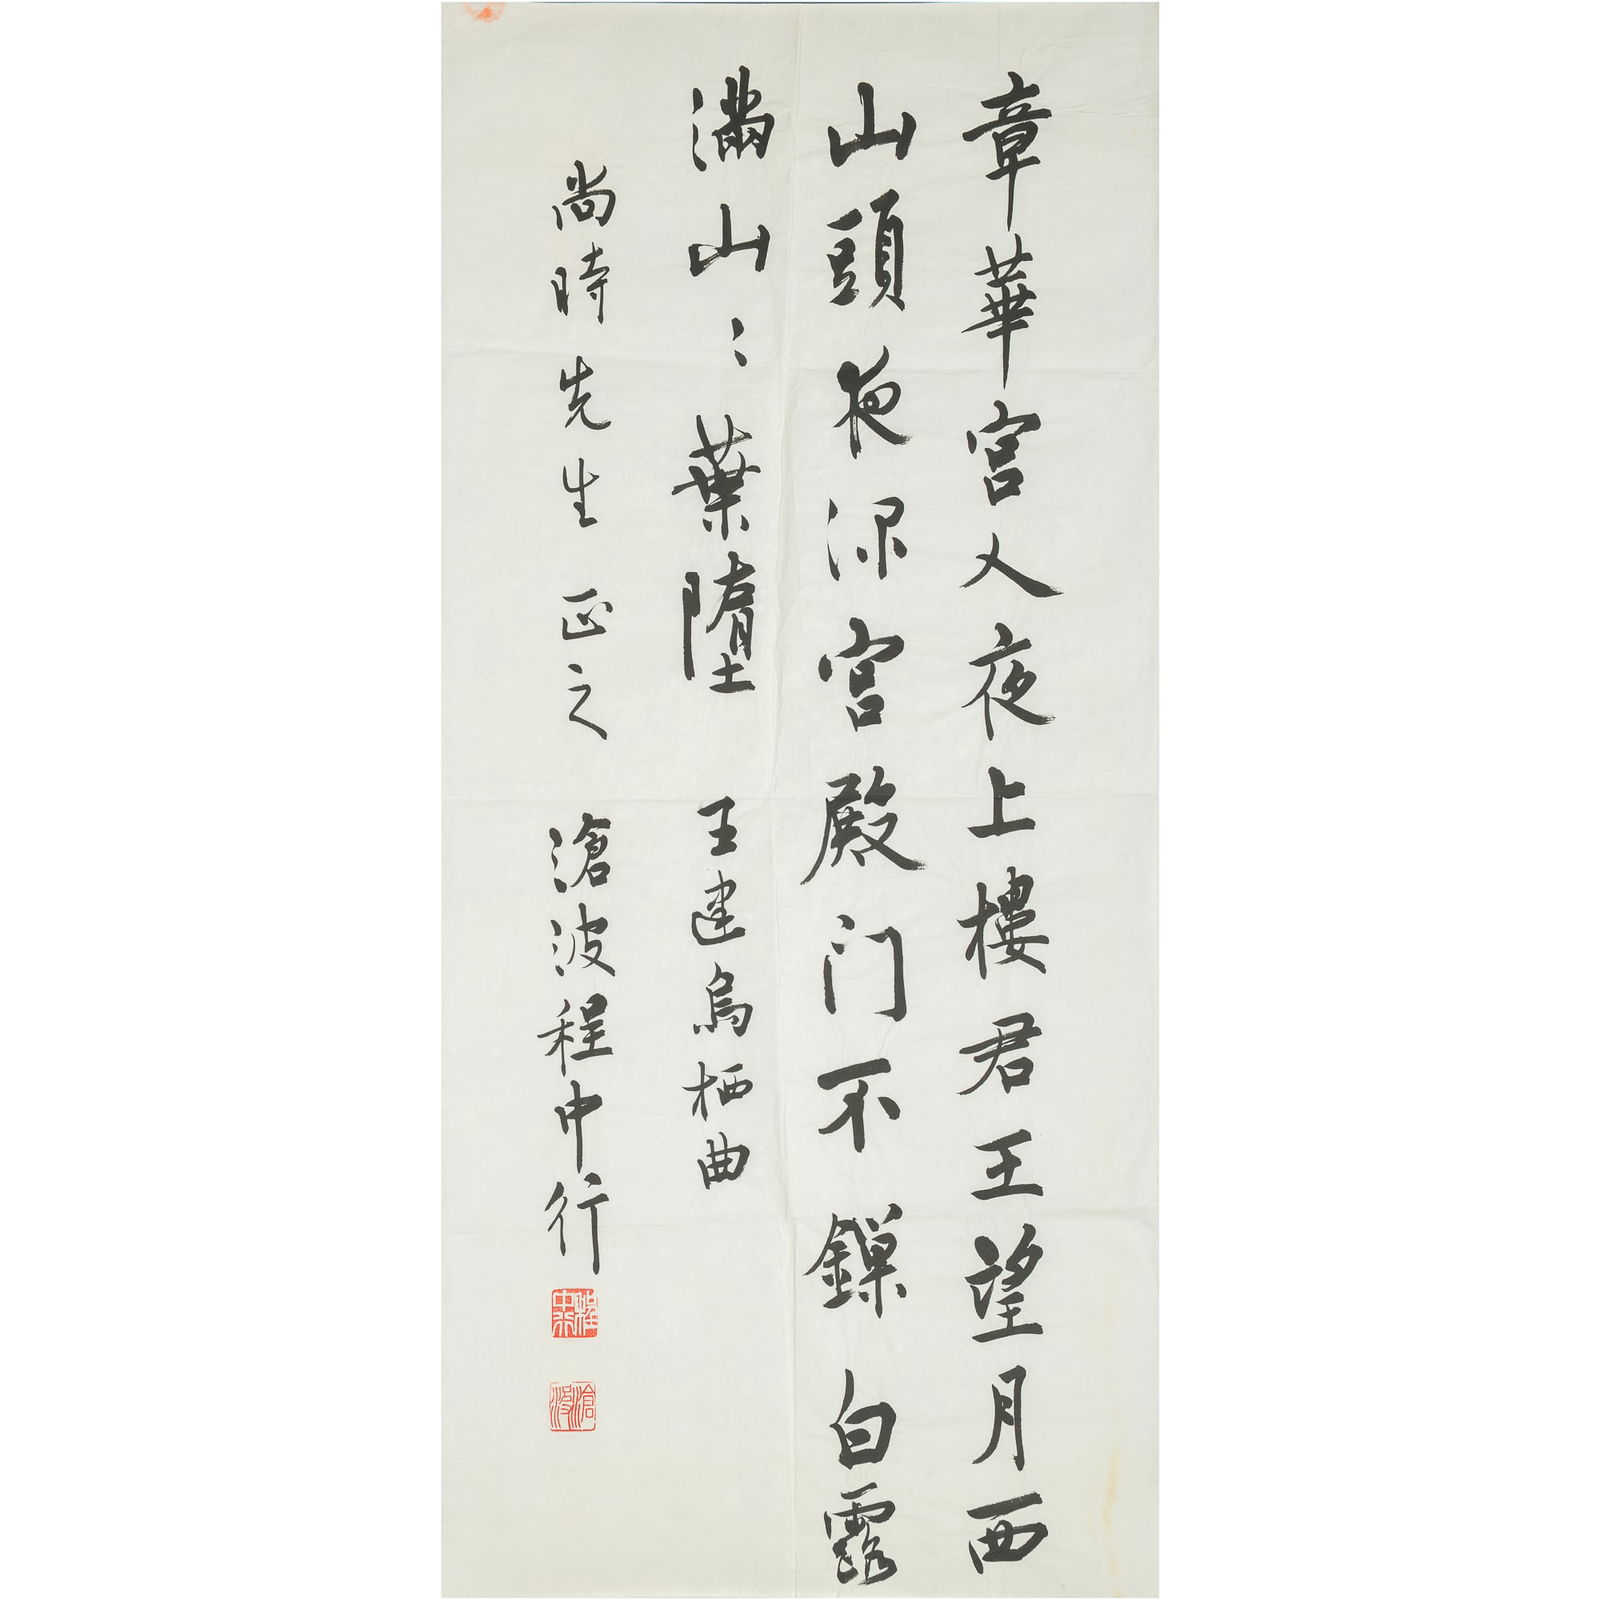 章華宮人夜上樓君王望月西
山頭夜深宮殿门不鏁白露
滿山〻葉墮 王建烏栖曲
尚時先生正之 滄波程中行
程中行
滄波